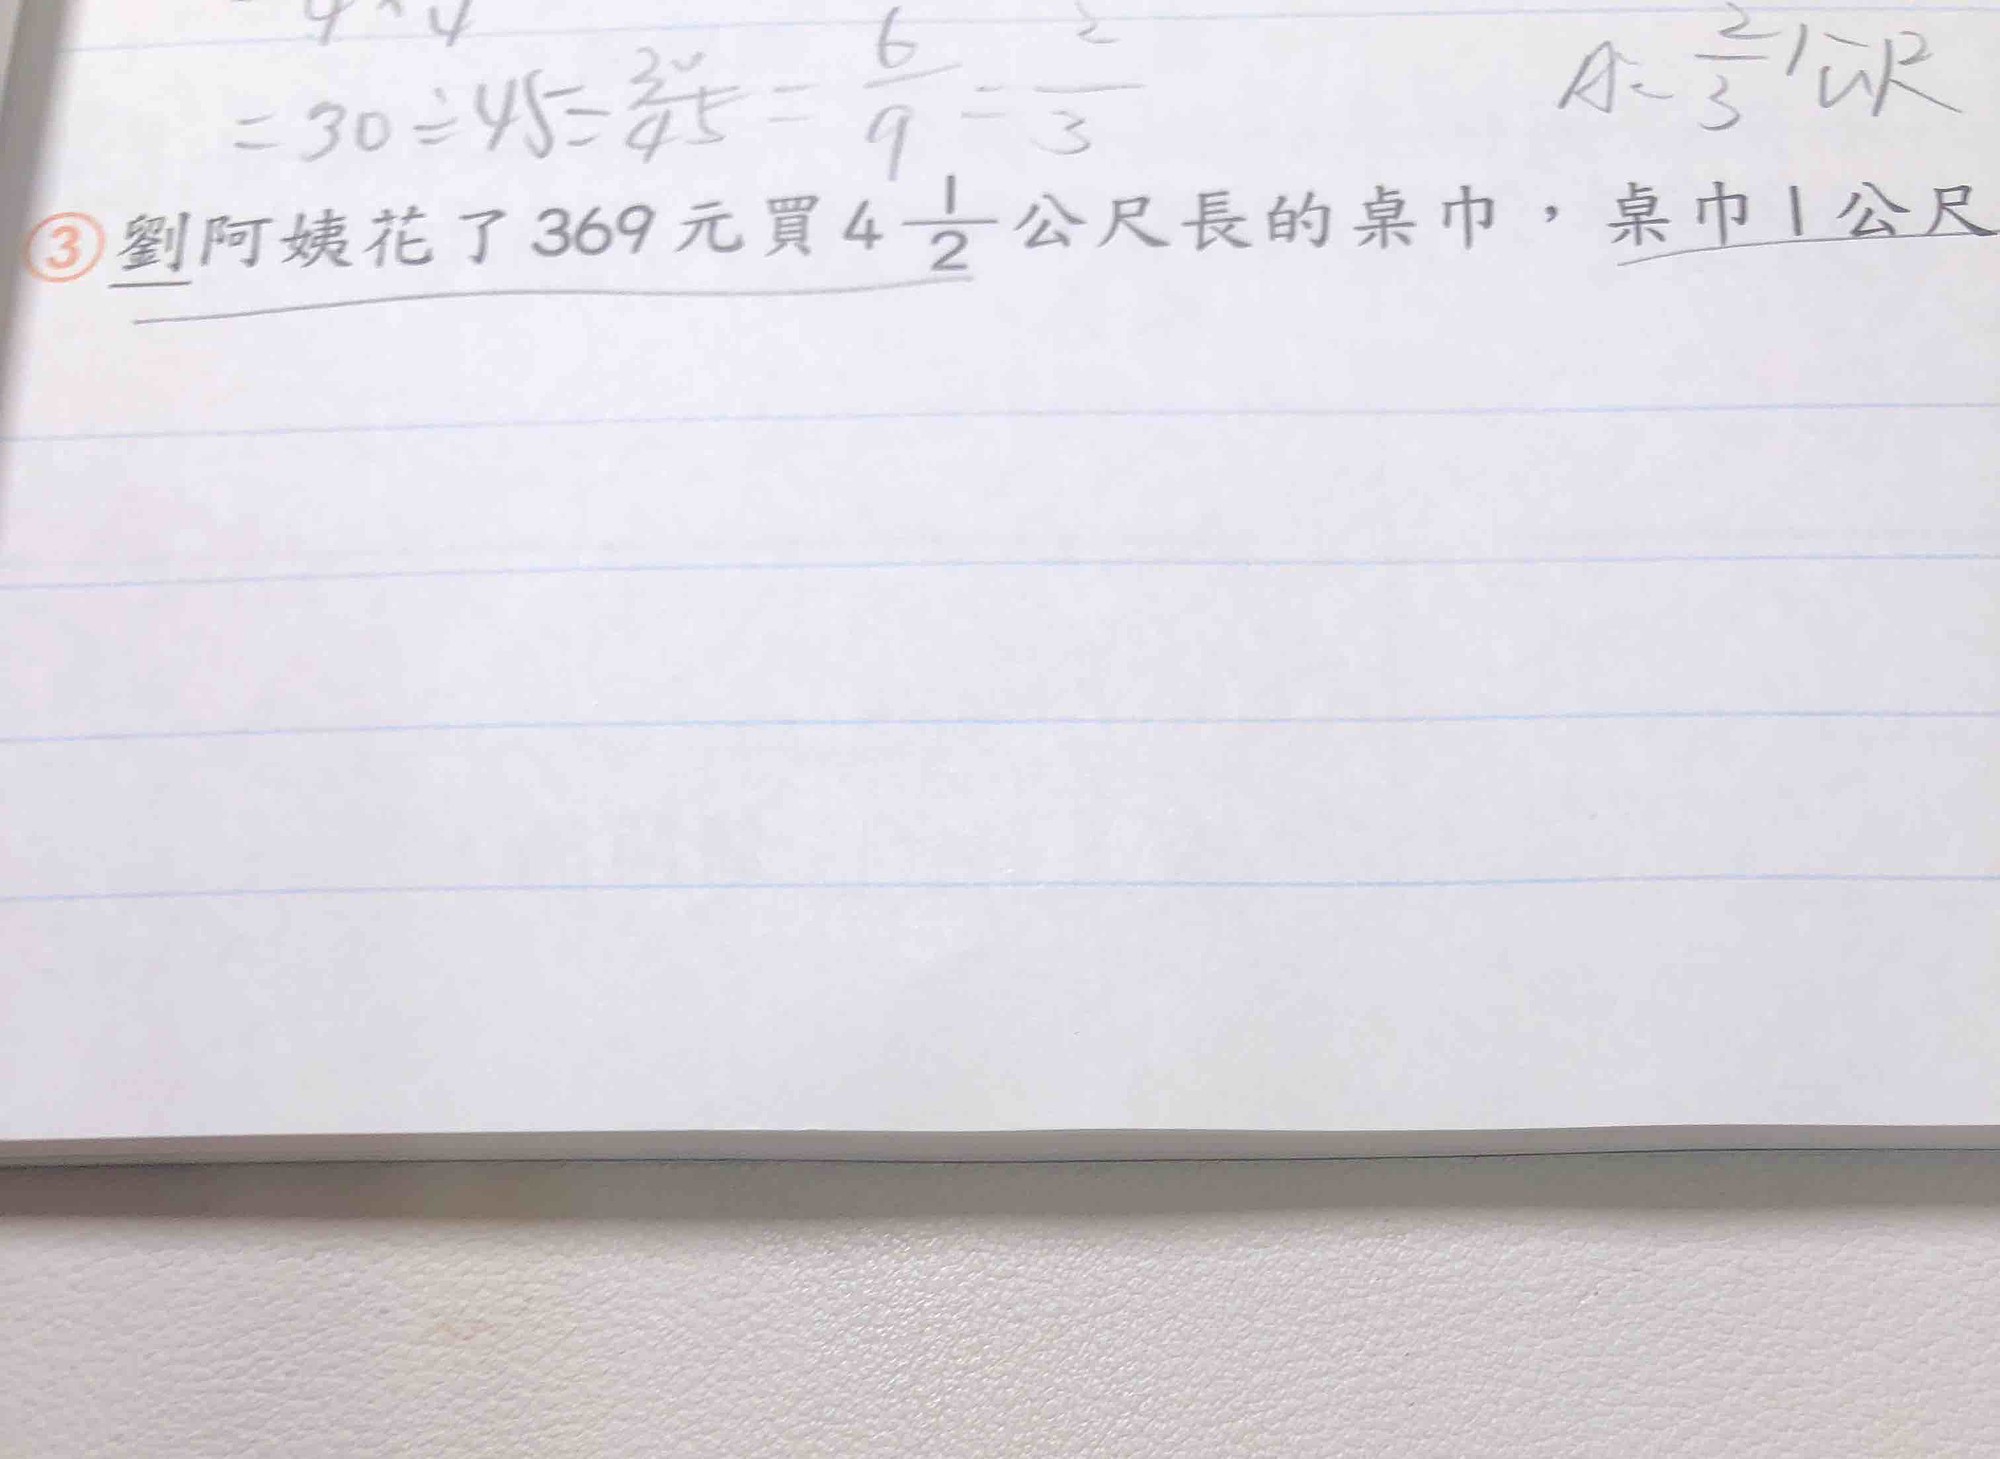 = 30 ÷ 45 = 30/45 = 6/9 = 2/3
A = 2/3 公尺
③ 劉阿姨花了369元買4 1/2 公尺長的桌巾，桌巾1公尺